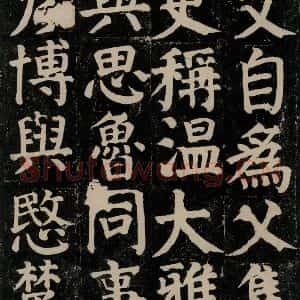 自為父集
史稱溫大雅
與思魯同事
彥博與愍楚
Shufawang.Cn